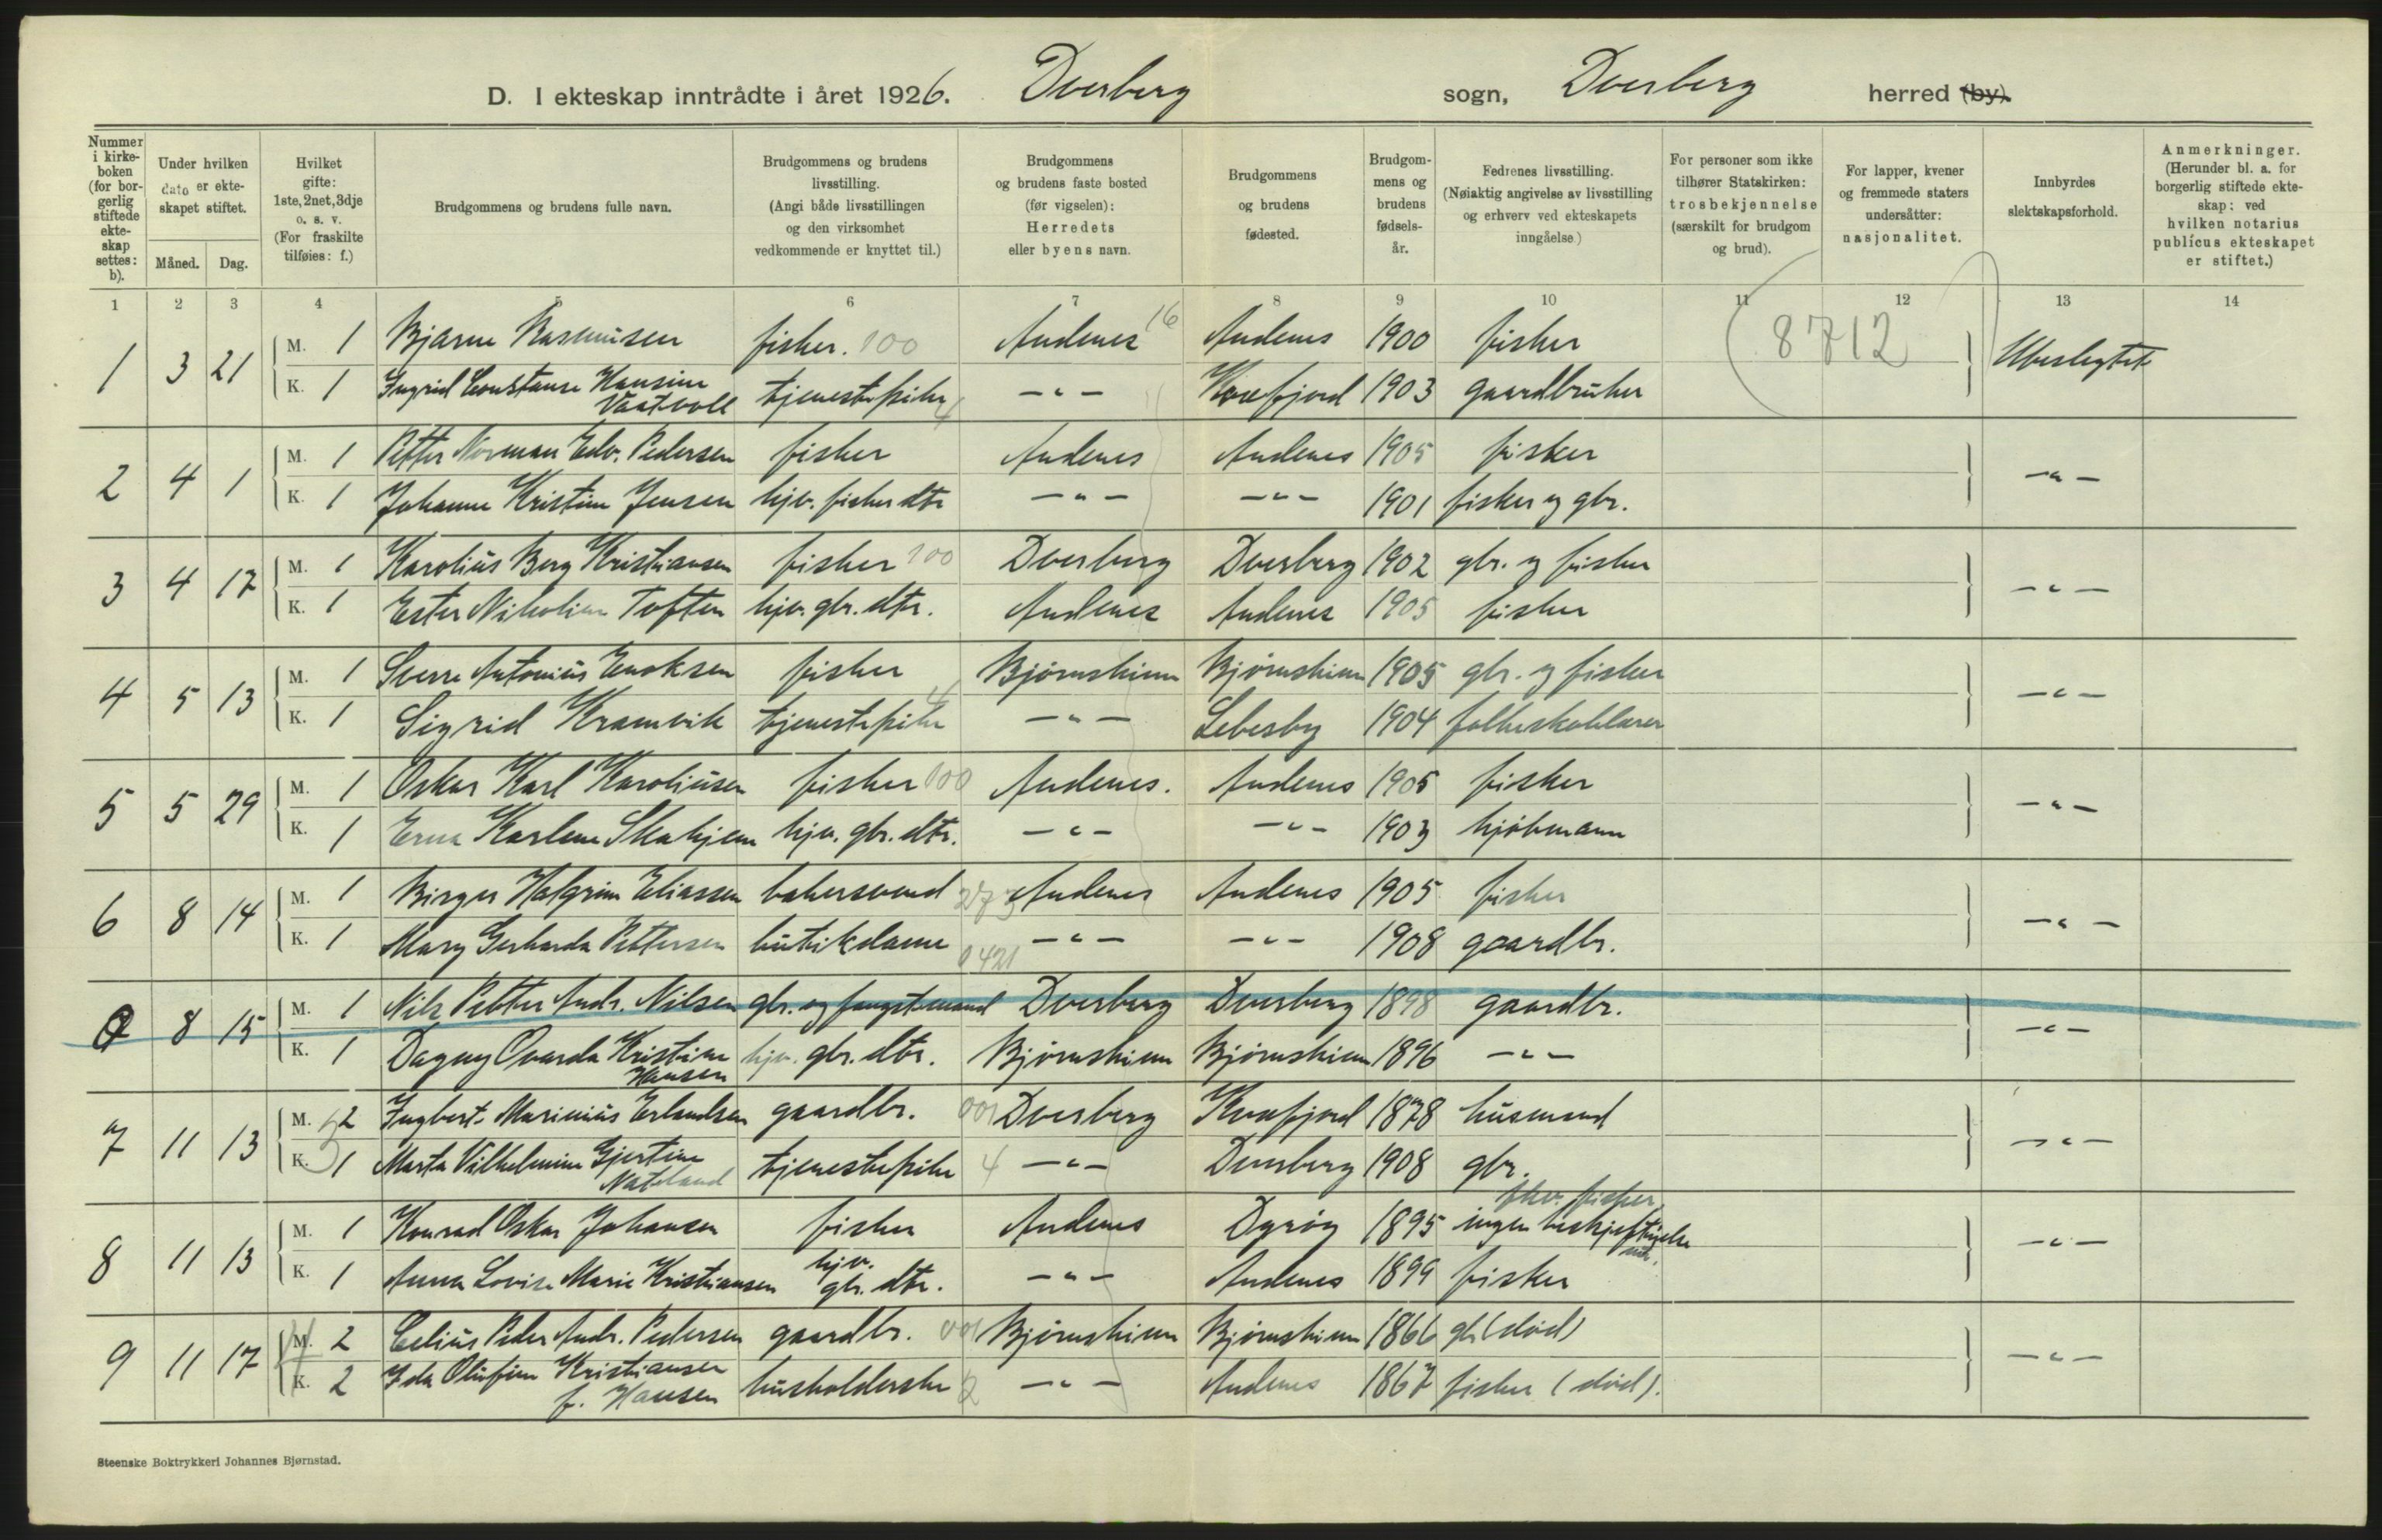 D. I ekteskap inntrådte i året 1926. Dverberg sogn, Dverberg herred (by).
Nummer i kirke-boken (for bor-gerlig stiftede ekte-skap settes: b).
Under hvilken dato er ekte-skapet stiftet.
Måned. Dag.
Hvilket gifte: 1ste, 2net, 3dje o. s. v. (For fraskilte tilføies: f.)
Brudgommens og brudens fulle navn.
Brudgommens og brudens livsstilling. (Angi både livsstillingen og den virksomhet vedkommende er knyttet til.)
Brudgommens og brudens faste bosted (før vigselen): Herredets eller byens navn.
Brudgommens og brudens fødested.
Brudgom-mens og brudens fødsels-år.
Fedrenes livsstilling. (Nøiaktig angivelse av livsstilling og erhverv ved ekteskapets inngåelse)
For personer som ikke tilhører Statskirken: trosbekjennelse (særskilt for brudgom og brud).
For lapper, kvener og fremmede staters undersåtter: nasjonalitet.
Innbyrdes slektskapsforhold.
Anmerkninger. (Herunder bl. a. for borgerlig stiftede ekte-skap: ved hvilken notarius publicus ekteskapet er stiftet.)
1 2 3 4 5 6 7 8 9 10 11 12 13 14
1 3 21 M. 1 Bjarne Rasmusen fisker. 100 Andenes 16 Andenes 1900 fisker 8712 Ubeslegtet
K. 1 Ingrid Constanse Hansine Vaatvoll tjenestepike 4 —"— Kvæfjord 1903 gaardbruker
2 4 1 M. 1 Petter Norman Edv. Pedersen fisker Andenes Andenes 1905 fisker —"—
K. 1 Johanne Kristine Jensen hjv. fisker dtr —"— —"— 1901 fisker og gbr.
3 4 17 M. 1 Karolius Berg Kristiansen fisker 100 Dverberg Dverberg 1902 gbr. og fisker —"—
K. 1 Ester Nikoline Toften hjv. gbr. dtr. Andenes Andenes 1905 fisker
4 5 13 M. 1 Sverre Antonius Enoksen fisker Bjørnskinn Bjørnskinn 1905 gbr. og fisker —"—
K. 1 Sigrid Kramvik tjenestepike 4 —"— Lebesby 1904 folkeskolelærer
5 5 29 M. 1 Oskar Karl Karoliusen fisker 100 Andenes. Andenes 1905 fisker —"—
K. 1 Erna Karlene Skahjem hjv. gbr. dtr. —"— —"— 1903 kjøbmann
6 8 14 M. 1 Birger Halgrim Eliassen bakersvend 273 Andenes Andenes 1905 fisker —"—
K. 1 Mary Gerharda Pettersen butikdame 0421 —"— —"— 1908 gaardbr.
8 15 M. 1 Nils Petter Andr. Nilsen gbr. og fangstmand Dverberg Dverberg 1898 gaardbr. —"—
K. 1 Dagny Ovarda Kristine Hansen hjv. gbr. dtr. Bjørnskinn Bjørnskinn 1896 —"—
7 11 13 M. 2 Ingbert Marinius Erlandsen gaardbr. 001 Dverberg Kvæfjord 1878 husmand —"—
K. 1 Marta Vilhelmine Gjertine Natland tjenestepike 4 —"— Dverberg 1908 gbr.
8 11 13 M. 1 Konrad Oskar Johansen fisker Andenes Dyrøy 1895 fhv. fisker ingen beskjeftigelse nu. —"—
K. 1 Anna Lovise Marie Kristiansen hjv. gbr. dtr. —"— Andenes 1899 fisker
9 11 17 M. 2 Celius Peder Andr. Pedersen gaardbr. 001 Bjørnskinn Bjørnskinn 1866 gbr (død) —"—
K. 2 Ida Olufine Kristiansen f. Hansen husholderske 2 —"— Andenes 1867 fisker (død).
Steenske Boktrykkeri Johannes Bjørnstad.